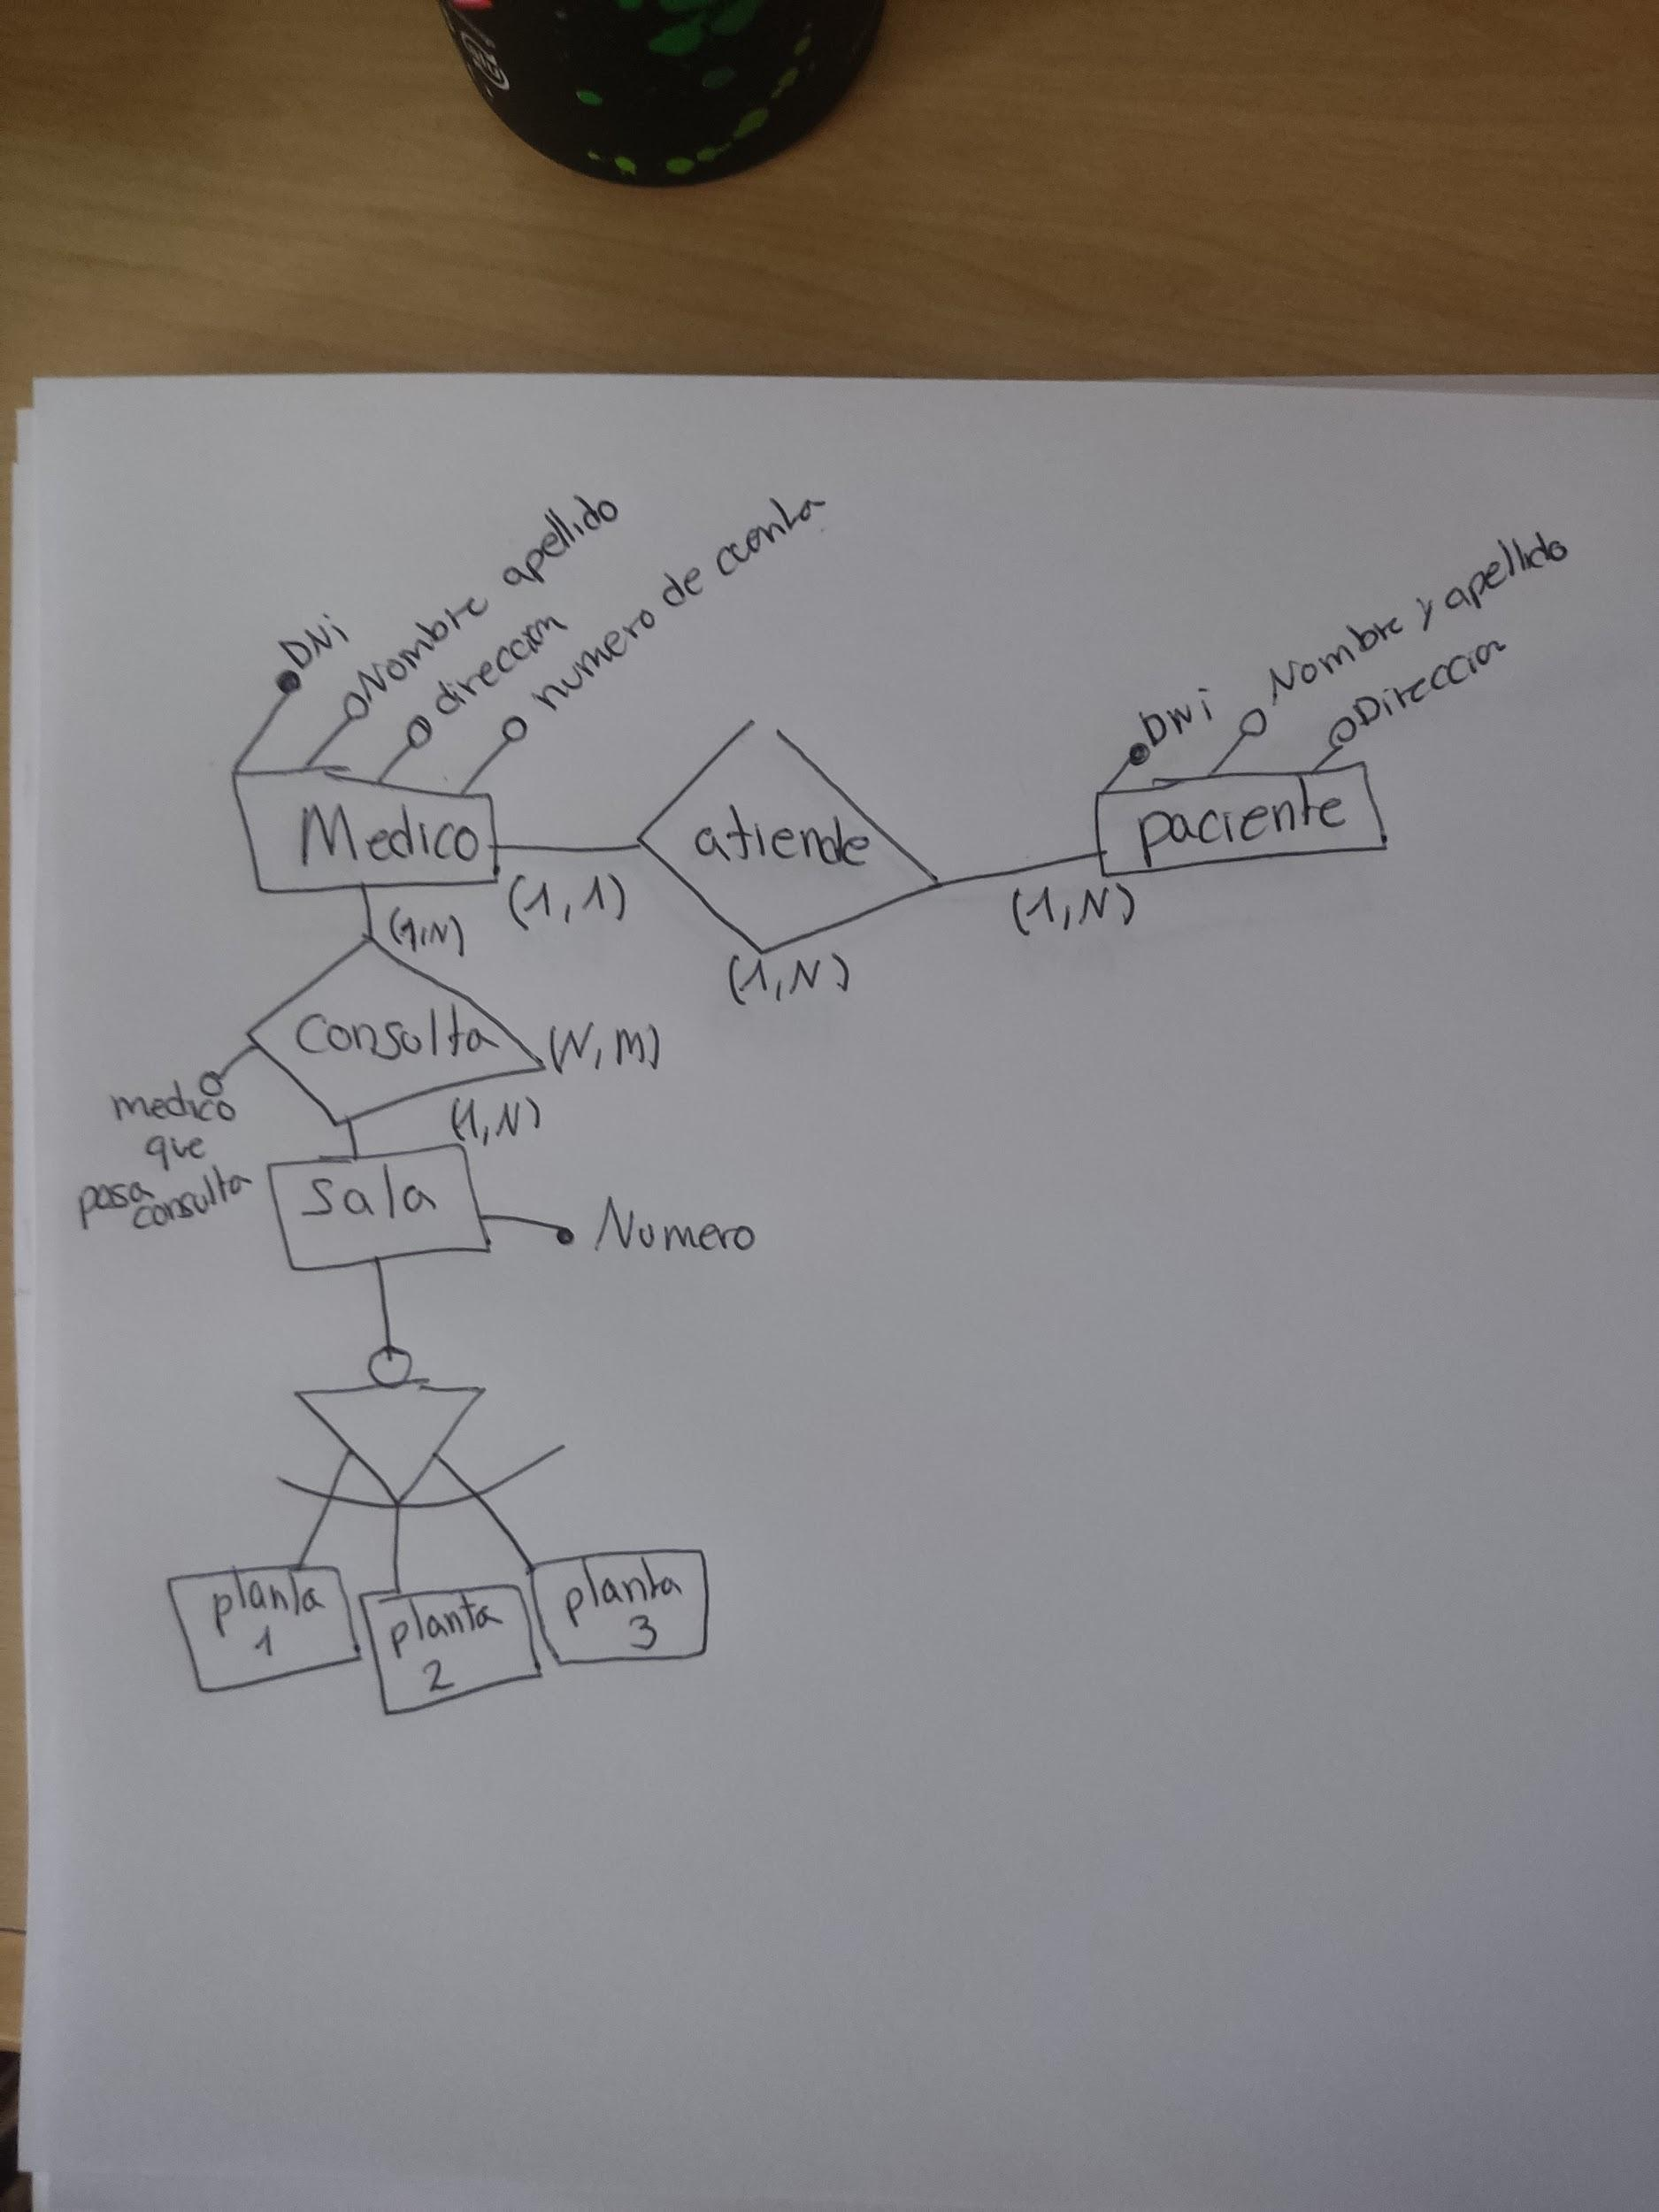 DNi
Nombre apellido
direccion
numero de cuenta
DNi
Nombre y apellido
Direccion
Medico
atiende
paciente
(1,1)
(1,N)
(1,N)
(1,N)
Consulta
(N,M)
(1,N)
medico
que
pasa
consulta
Sala
Numero
planta
1
planta
2
planta
3